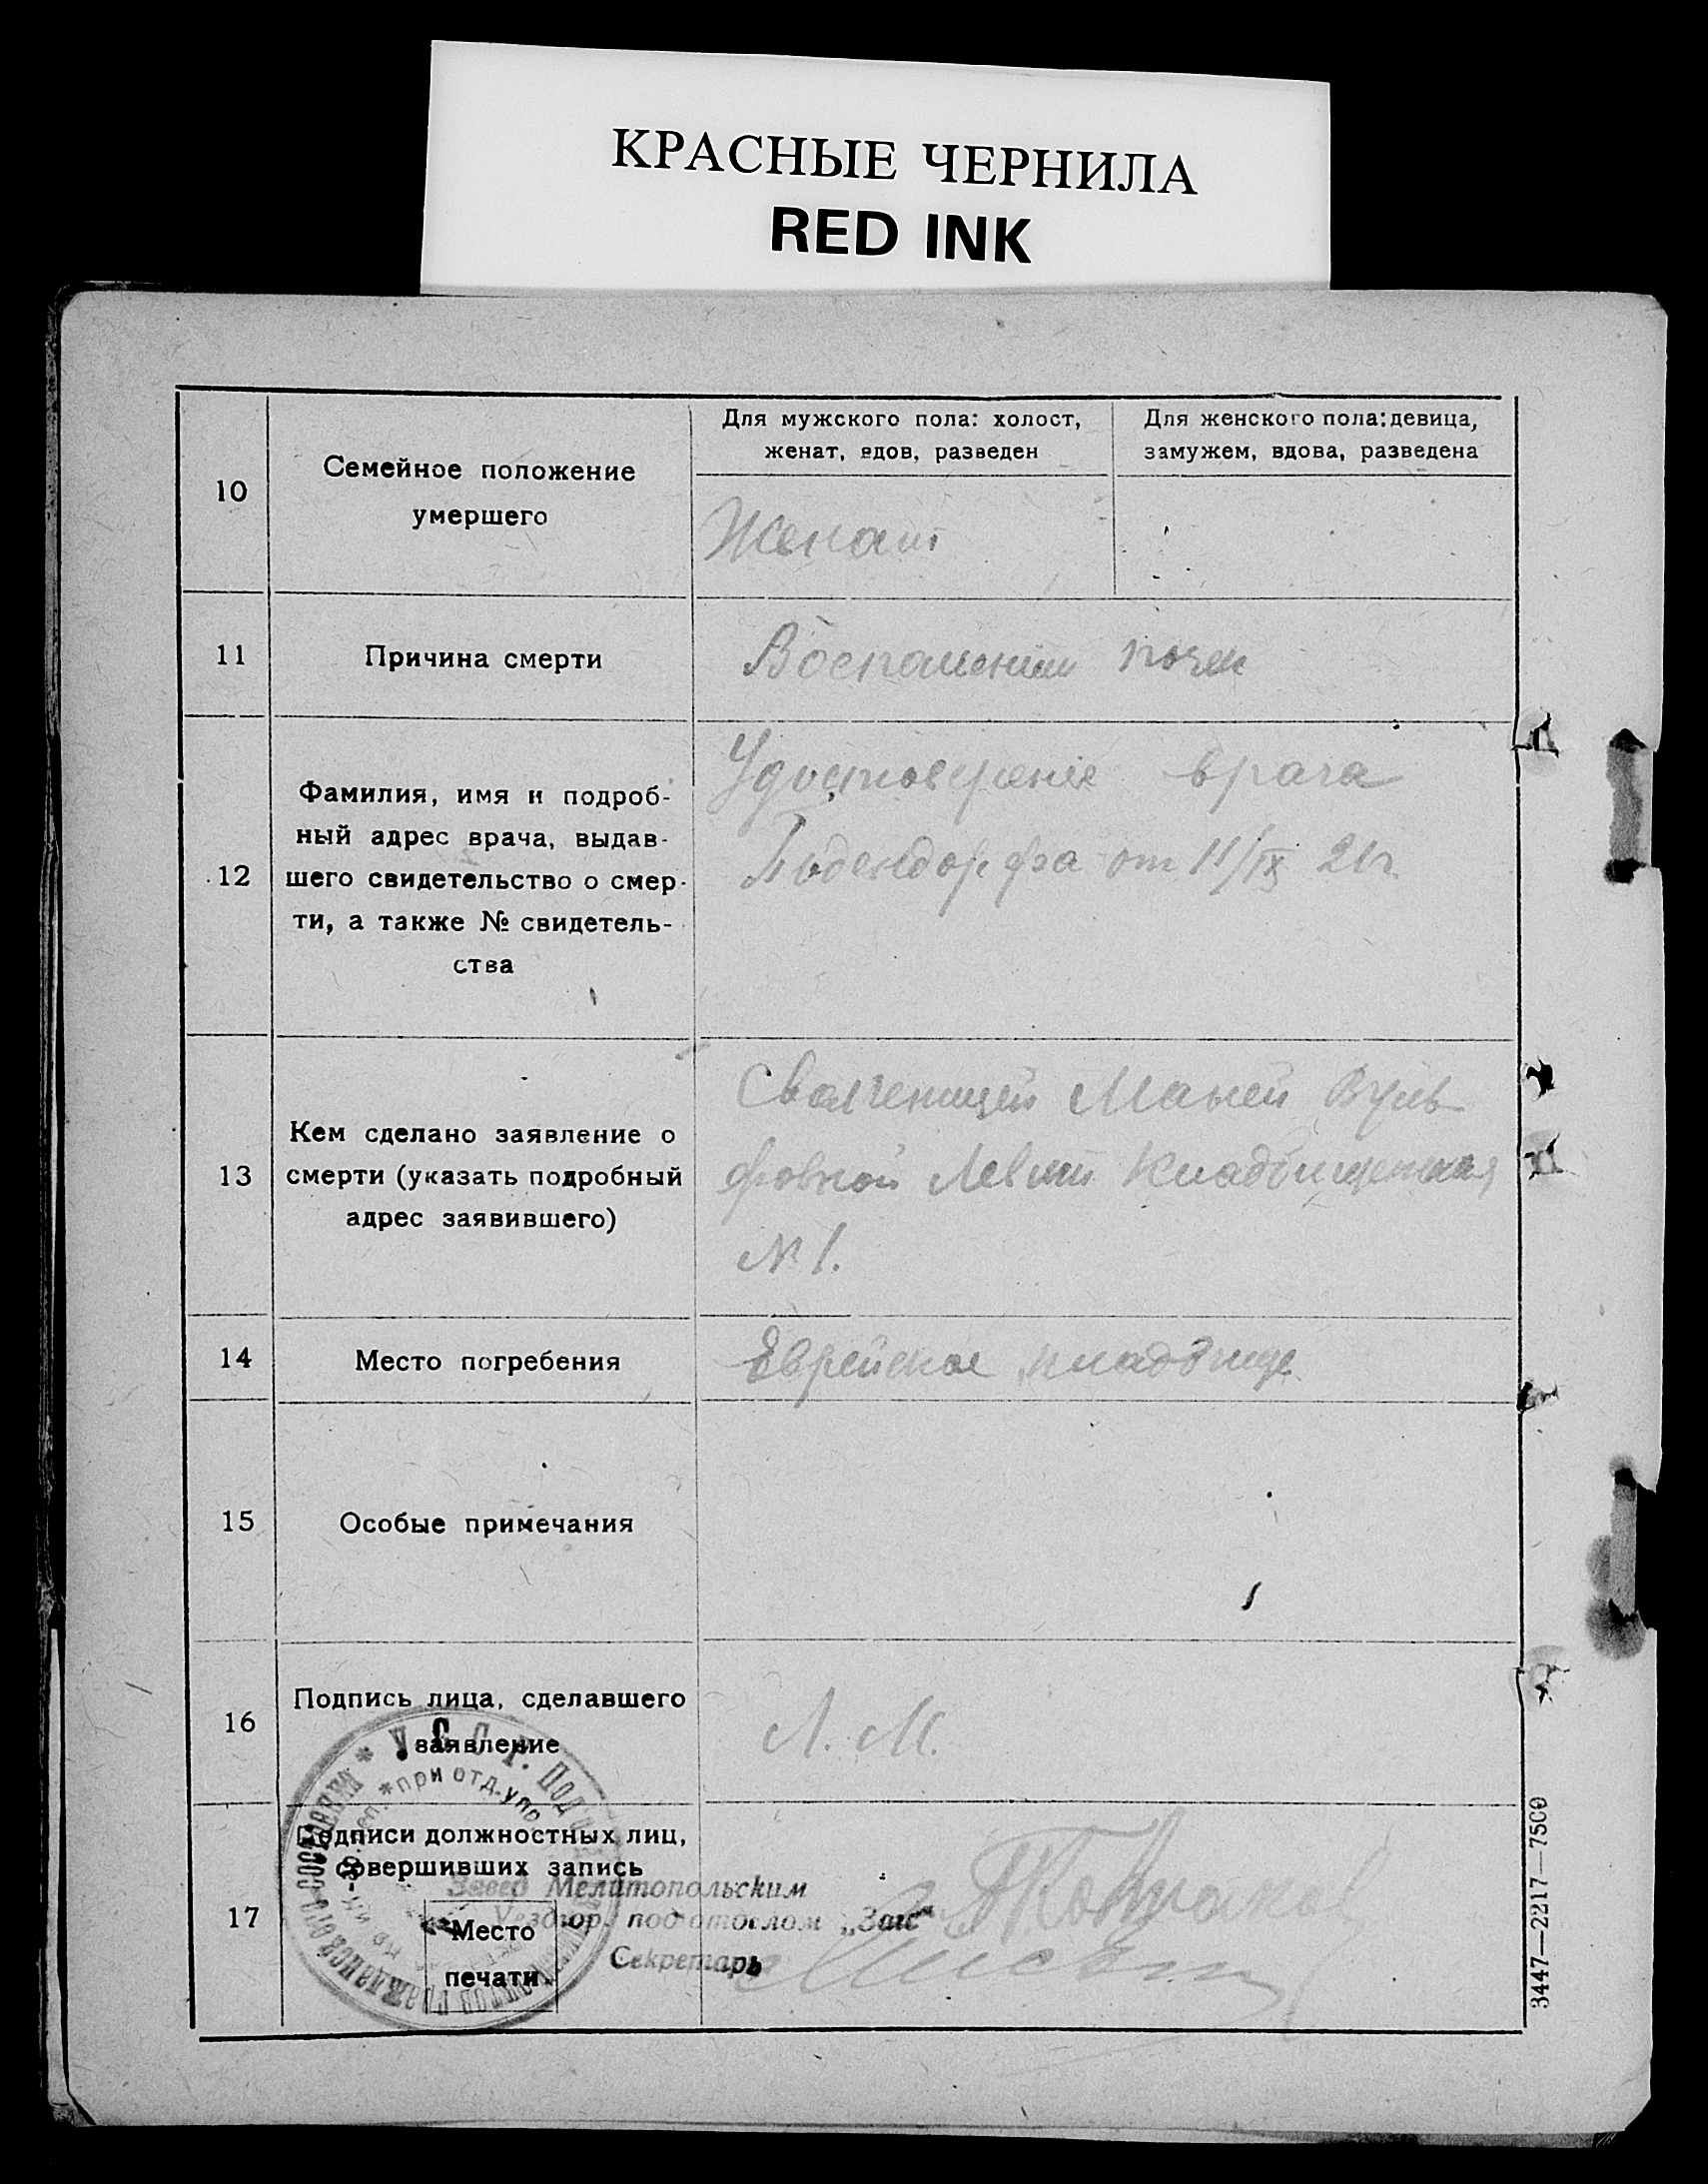 КРАСНЫЕ ЧЕРНИЛА
RED INK
10
Семейное положение
умершего
Для мужского пола: холост,
женат, вдов, разведен
Для женского пола: девица,
замужем, вдова, разведена
Женат
11
Причина смерти
Воспаление почек
12
Фамилия, имя и подроб-
ный адрес врача, выдав-
шего свидетельство о смер-
ти, а также № свидетель-
ства
Удостоверение врача
от 11/IX 21г.
13
Кем сделано заявление о
смерти (указать подробный
адрес заявившего)
Маней Вуль
фовной Левит Кладбищенская
№ 1.
14
Место погребения
Еврейское кладбище
15
Особые примечания
16
Подпись лица, сделавшего
заявление
Л. М.
17
Подписи должностных лиц,
совершивших запись
Место
печати
Завед Мелитопольским
Уездгор. подотделом „Загс"
Секретарь
* У. С. С. Р. Под
* при отд. упр
3447—2217—7500